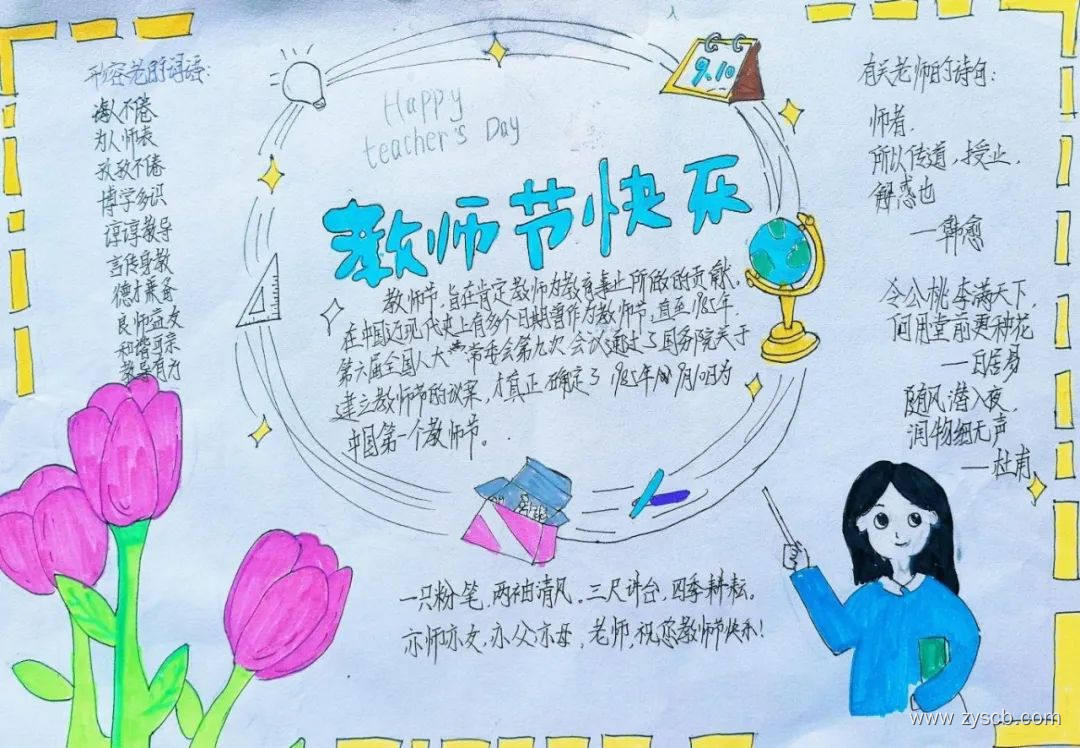 形容老师的词语:
诲人不倦
为人师表
孜孜不倦
博学多识
谆谆教导
言传身教
德才兼备
良师益友
和谐可亲
教导有方
Happy
teacher's Day
9.10
教师节快乐
教师节,旨在肯定教师为教育事业所做的贡献。
在中国近现代史上有多个日期曾作为教师节,直至1985年,
第六届全国人大常委会第九次会议通过了国务院关于
建立教师节的议案,才真正确定了1985年9月10日为
中国第一个教师节。
一只粉笔,两袖清风。三尺讲台,四季耕耘。
亦师亦友,亦父亦母,老师,祝您教师节快乐!
有关老师的诗句:
师者,
所以传道,授业,
解惑也
—韩愈
令公桃李满天下,
何用堂前更种花
—白居易
随风潜入夜,
润物细无声
—杜甫
www.zyscb.com